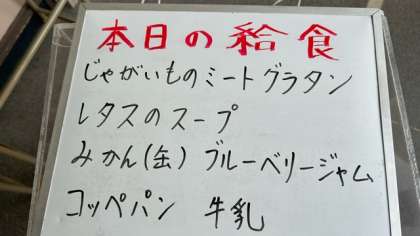 本日の給食
じゃがいものミートグラタン
レタスのスープ
みかん(缶) ブルーベリージャム
コッペパン 牛乳